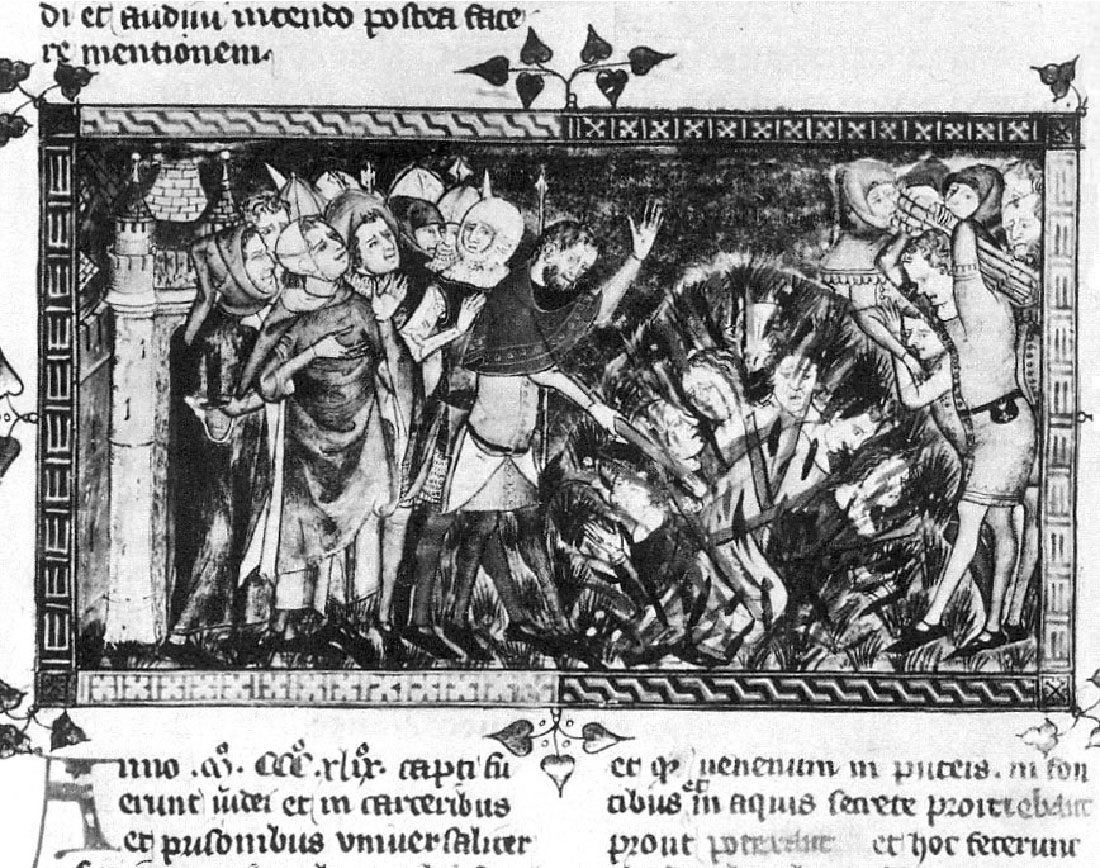 di et audiui intendo postea face
re mentionem.
Anno .mº. CCCº. xlixº. capti fu
erunt iudei et in carceribus
et prisonibus vniuersaliter
et qꝫ uenenum in puteis. in fon
tibus et in aquis secrete proiciebant
prout poterant et hoc fecerunt